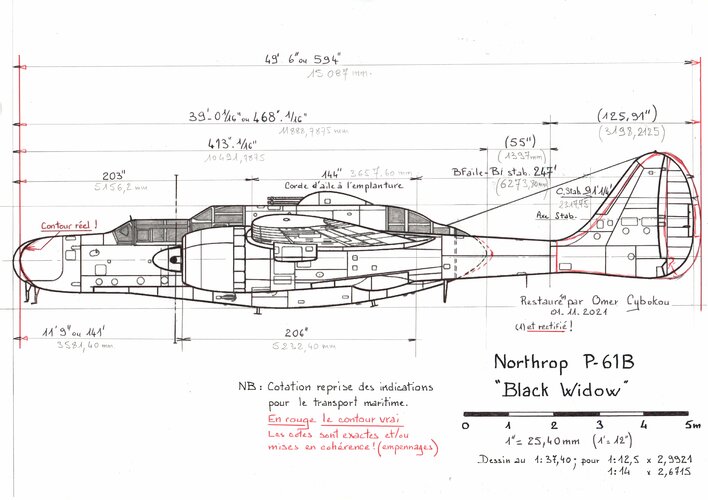 49' 6" ou 594"
15 087 mm
39'-0 1/16" ou 468".1/16"
11888,7875 mm
(125,91")
(3198,2125)
413".1/16"
10491,7875
(55")
(1397mm)
203"
5156,2 mm
144" 3657,60 mm
Corde d'aile à l'emplanture
BFaile-Bf stab. 247"
(6273,80mm)
C.Stab 91"1/4"
2217,75
Axe Stab.
Contour réel !
Restauré(1) par Omer Cybokou
01.11.2021
(1) et rectifié !
11' 9" ou 141"
3581,40 mm
206"
5232,40 mm
Northrop P-61B
"Black Widow"
NB : Cotation reprise des indications
pour le transport maritime.
En rouge le contour vrai
Les cotes sont exactes et/ou
mises en cohérence ! (empennages)
0 1 2 3 4 5m
1" = 25,40 mm (1' = 12")
Dessin au 1:37,40 ; pour 1:12,5 x 2,9921
1:14 x 2,6715